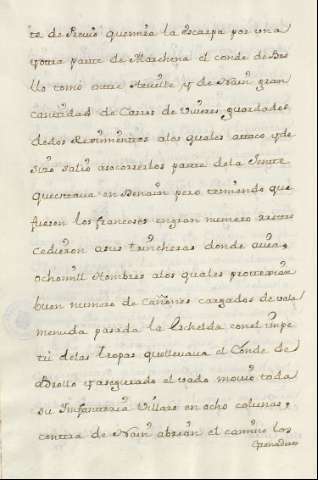 te de Previo quemira la escarpa por una
y otra parte de Marchena el conde de Bro
llo tomó entre Azente y de Nain gran
cantidad de Carros de viveres guardados
de dos Reximientos alos quales ataco y de
sizo salio asocorrerlos parte dela Jente
que estava en Denain pero temiendo que
fuesen los franceses en gran numero retro
cedieron asus trincheras donde avia
ocho mill Hombres alos quales protexian
buen numero de cañones cargados de vala
menuda pasada la Eschelda con el impe
tu delas tropas que llevava el Conde de
Brollo y asegurado el vado movio toda
su Infanteria Villars en ocho colunas,
contra de Nain abrian el camino los
Granaderos